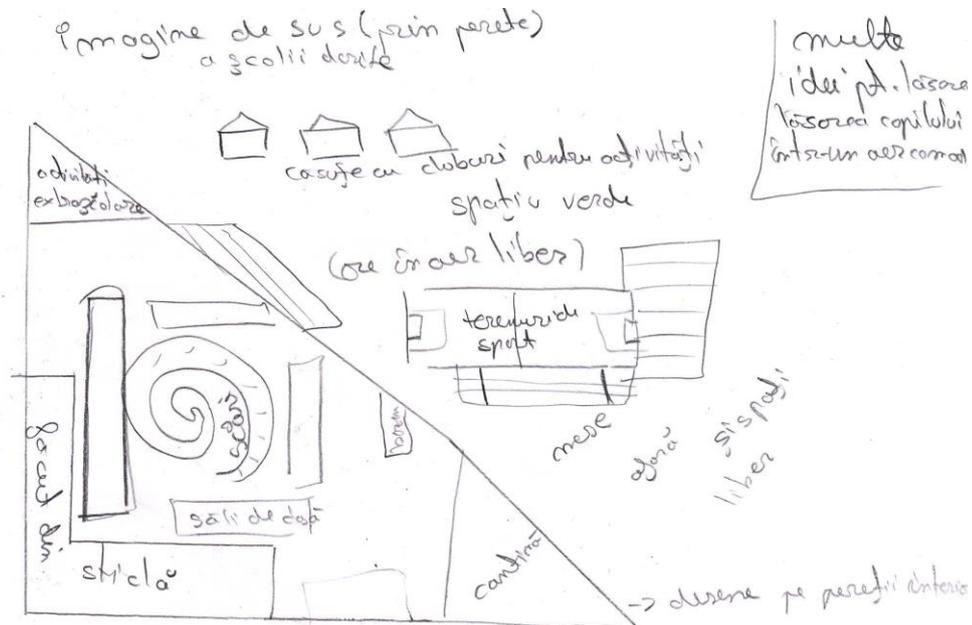 imagine de sus (prin perete)
a școlii dorite
multe
idei pt. lăsarea
lăsarea copilului
într-un aer comod
casuțe cu cluburi pentru activități
spațiu verde
(ore în aer liber)
activități
extrașcolare
terenuri de
sport
scări
săli de clasă
făcut din
sticlă
cantină
mese
afară
și spații
liber
-> desene pe pereții interio